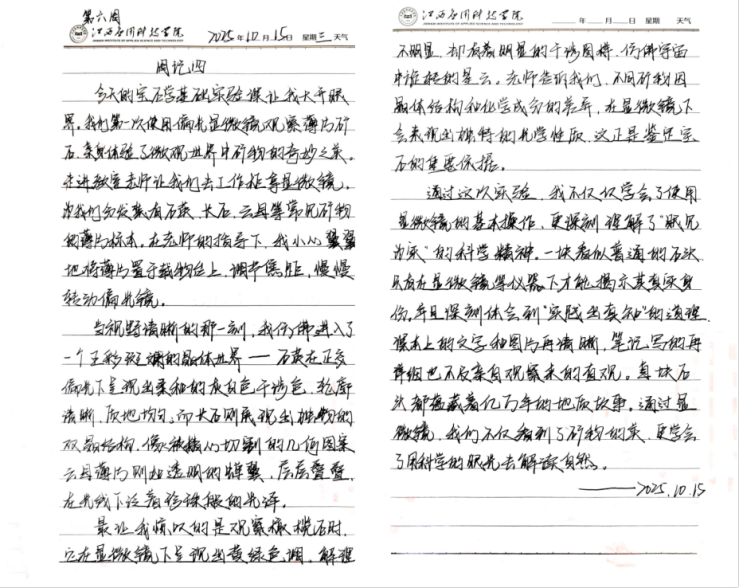 第六周
江西应用科技学院
JIANGXI INSTITUTE OF APPLIED SCIENCE AND TECHNOLOGY
2025年10月15日 星期三 天气
周记四
今天的宝石学基础实验课让我大开眼
界。我们第一次使用偏光显微镜观察薄片矿
石,亲身体验了微观世界中矿物的奇妙之美。
走进教室老师让我们去工作柜拿显微镜,
为我们分发装有石英、长石、云母等常见矿物
的薄片标本。在老师的指导下,我小心翼翼
地将薄片置于载物台上,调节焦距,慢慢
转动偏光镜。
当视野清晰的那一刻,我仿佛进入了
一个五彩斑斓的晶体世界——石英在正交
偏光下呈现出柔和的灰白色干涉色,轮廓
清晰,质地均匀,而长石则展现出独特的
双晶结构,像被精心切割的几何图案
云母薄片则如透明的蝉翼,层层叠叠,
在光线下泛着珍珠般的光泽。
最让我惊叹的是观察橄榄石时,
它在显微镜下呈现出黄绿色调,解理
江西应用科技学院
JIANGXI INSTITUTE OF APPLIED SCIENCE AND TECHNOLOGY
年 月 日 星期 天气
不明显,却有着明显的干涉图样,仿佛宇宙
中堆积的星云。老师告诉我们,不同矿物因
晶体结构和化学成分的差异,在显微镜下
会表现出独特的光学性质,这正是鉴定宝
石的重要依据。
通过这次实验,我不仅仅学会了使用
显微镜的基本操作,更深刻理解了"眼见
为实"的科学精神。一块看似普通的石头
只有在显微镜等仪器下才能揭示其真实身
份,并且深刻体会到"实践出真知"的道理
课本上的文字和图片再清晰,笔记写的再
详细也不及亲自观察来的直观。每块石
头都蕴藏着亿万年的地质故事。通过显
微镜,我们不仅看到了矿物的美,更学会
了用科学的眼光去解读自然。
——2025.10.15